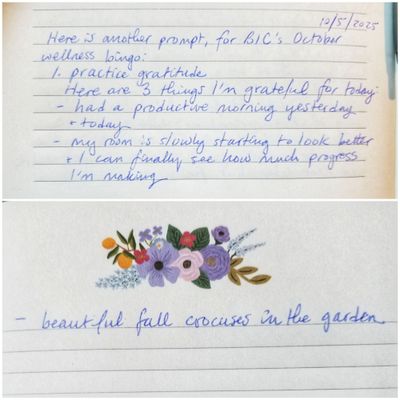 10/5/2025
Here is another prompt, for BIC's October
wellness bingo:
1. practice gratitude
Here are 3 things I'm grateful for today:
- had a productive morning yesterday
+ today
- my room is slowly starting to look better
+ I can finally see how much progress
I'm making
- beautiful fall crocuses in the garden